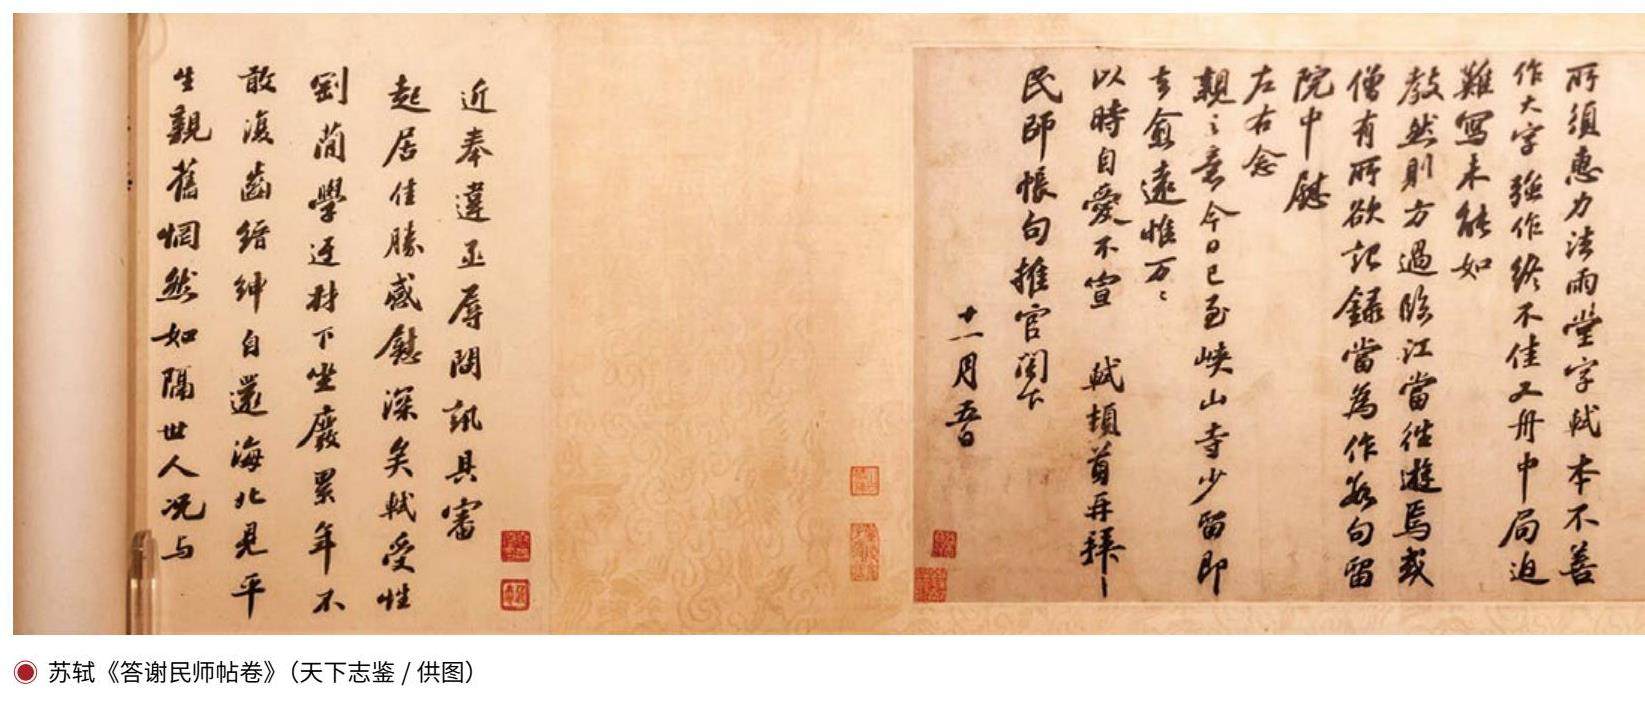 所須惠力法雨堂字軾本不善
作大字強作終不佳又舟中局迫
難寫未能如
教然則方過臨江當往遊焉或
僧有所欲記錄當為作數句留
院中慰
左右念
親之意今日已至峽山寺少留即
去愈遠惟万万
以時自愛不宣 軾頓首再拜
民師帳句推官閣下
十一月五日
近奉違亟辱問訊具審
起居佳勝感慰深矣軾受性
剛簡學迂材下坐廢累年不
敢復齒縉紳自還海北見平
生親舊惘然如隔世人况与
苏轼《答谢民师帖卷》（天下志鉴 / 供图）